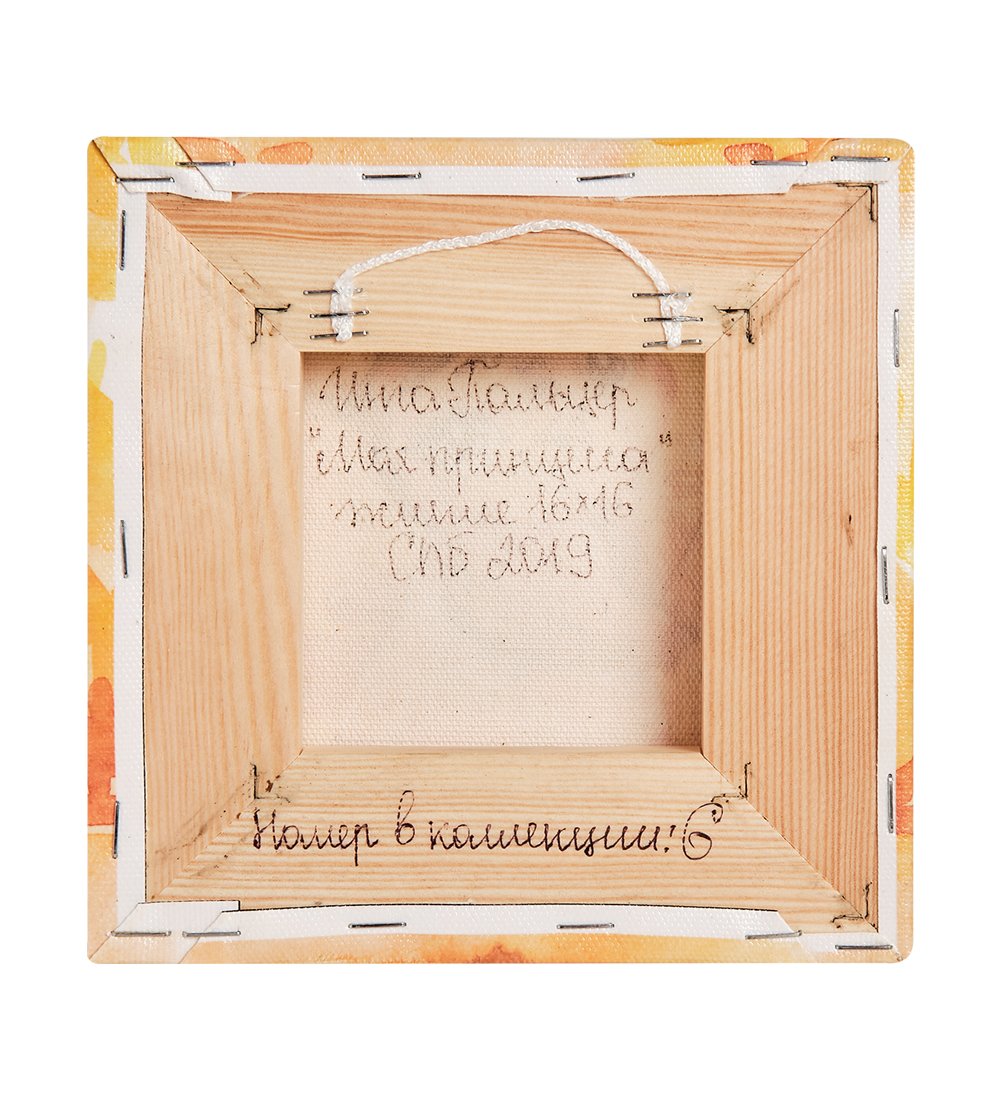 Инга Пальцер
"Моя принцесса"
жикле 16×16
СПб 2019
Номер в коллекции: 6